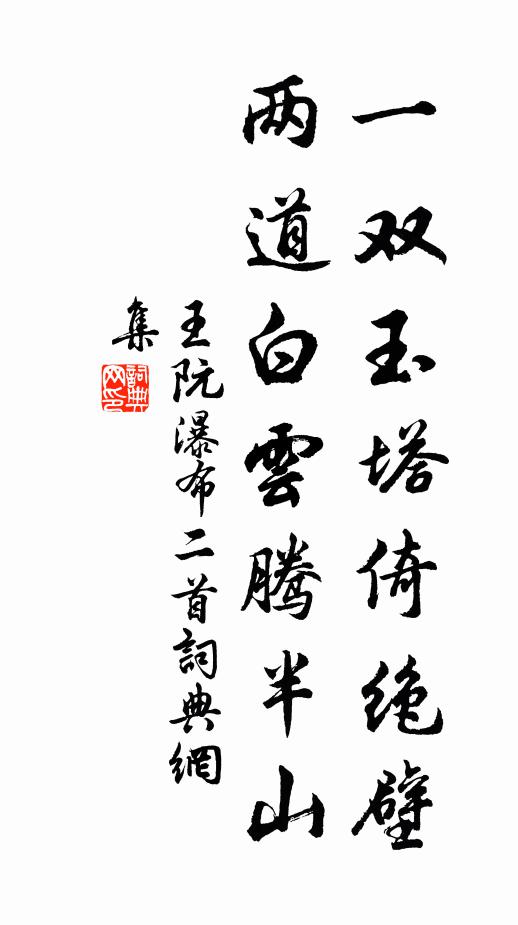 一双玉塔倚绝壁
两道白雲腾半山
王阮瀑布二首詞典網
集
詞典網印